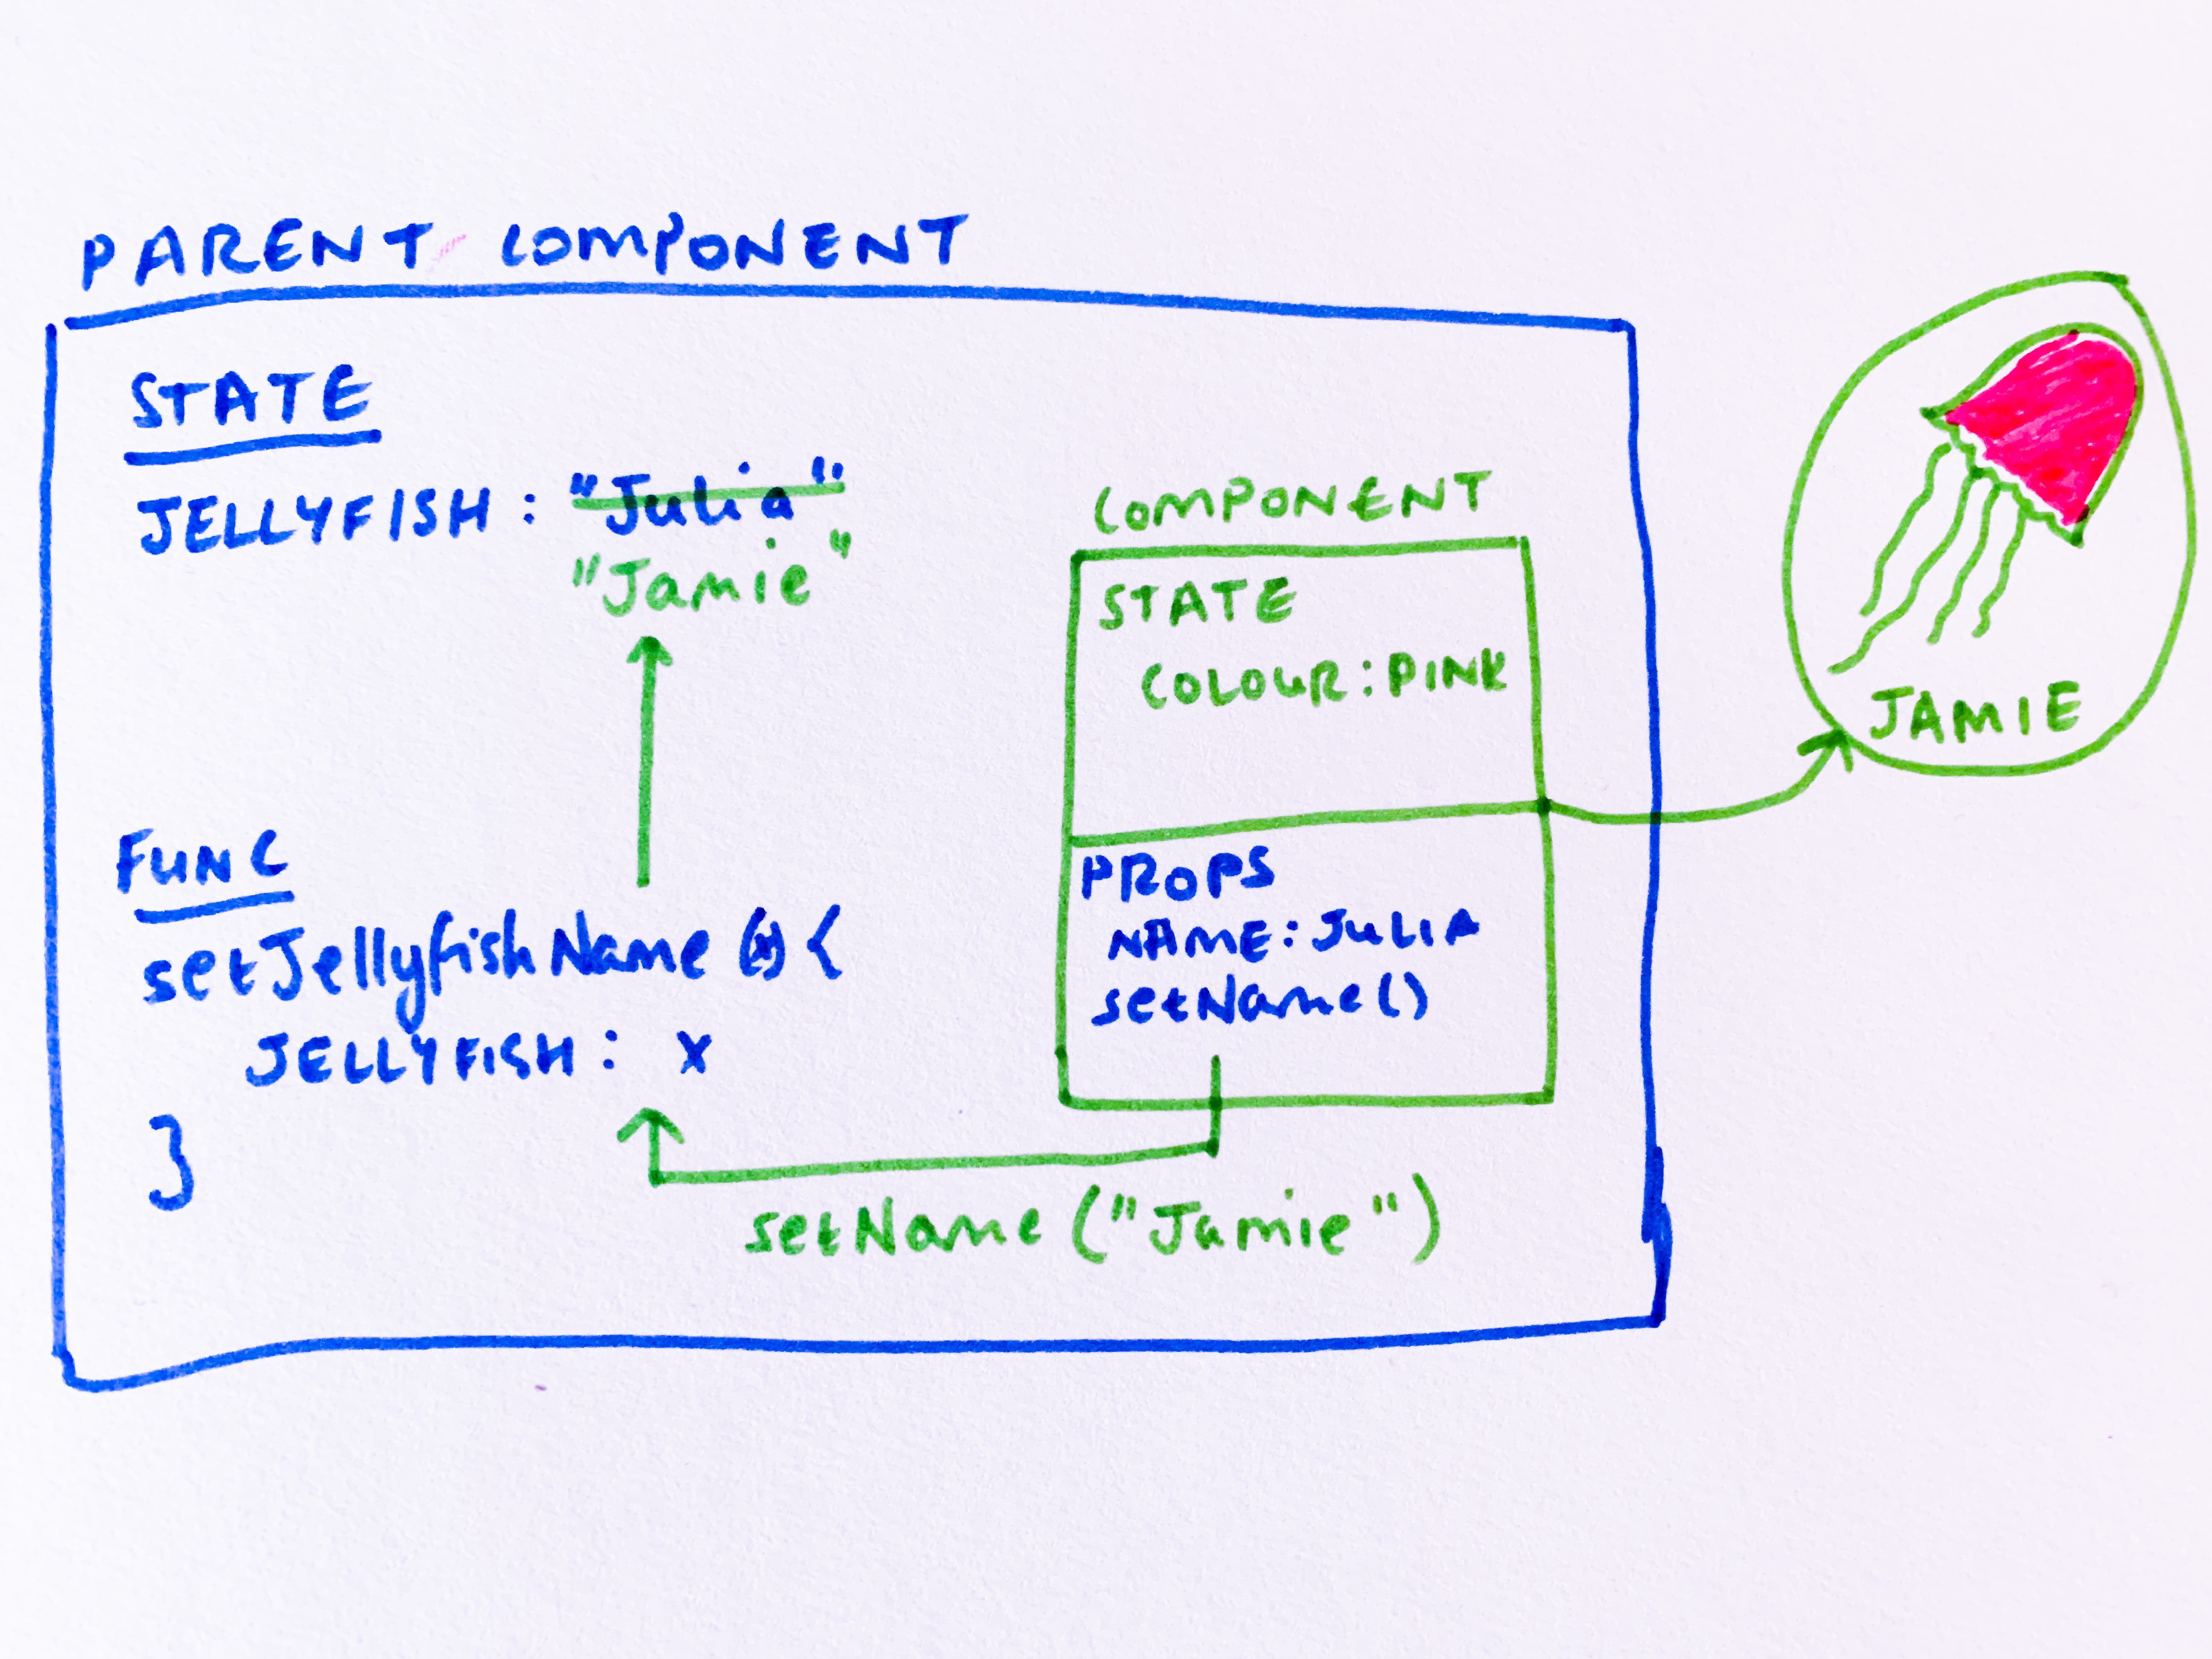 PARENT COMPONENT
STATE
JELLYFISH: "Julia"
"Jamie"
FUNC
setJellyfishName (x) {
JELLYFISH: x
}
COMPONENT
STATE
COLOUR: PINK
PROPS
NAME: JULIA
setName()
setName ("Jamie")
JAMIE